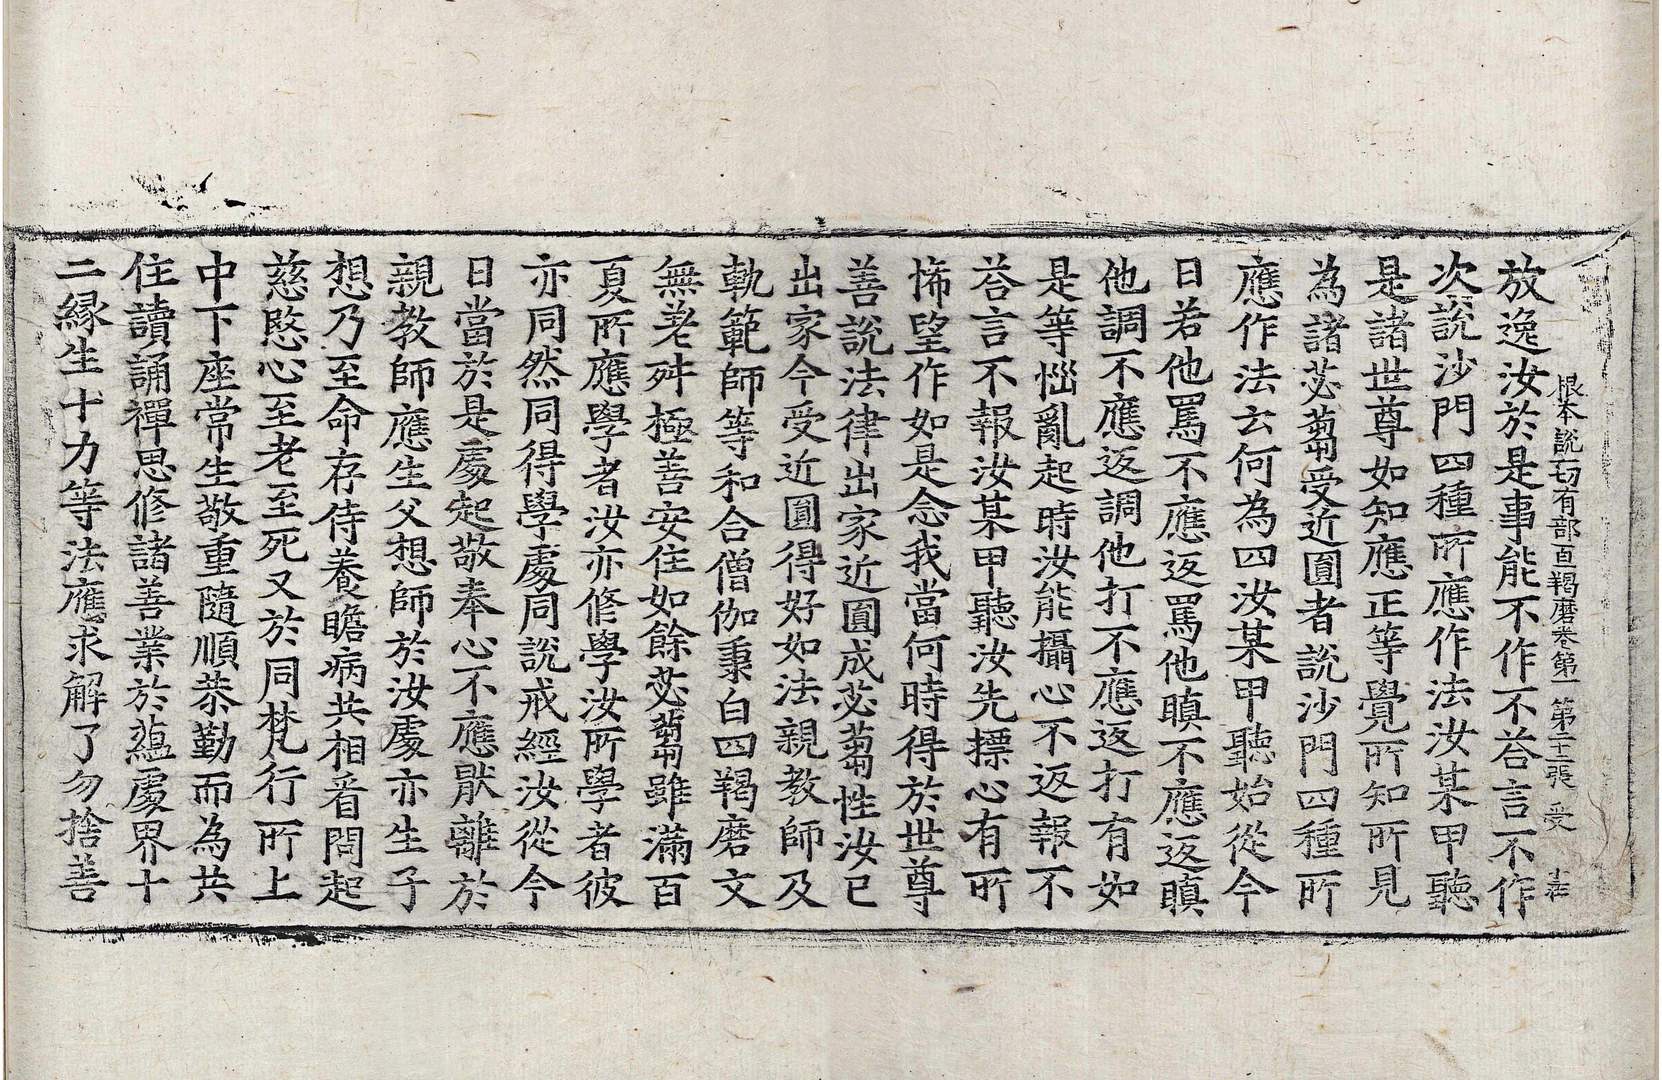 根本說一切有部百一羯磨卷第一 第二十三張 受
放逸汝於是事能不作不荅言不作
次說沙門四種所應作法汝某甲聽
是諸世尊如知應正等覺所知所見
為諸苾蒭受近圓者說沙門四種所
應作法云何為四汝某甲聽始從今
日若他罵不應返罵他瞋不應返瞋
他調不應返調他打不應返打有如
是等惱亂起時汝能攝心不返報不
荅言不報汝某甲聽汝先摽心有所
悕望作如是念我當何時得於世尊
善說法律出家近圓成苾蒭性汝已
出家今受近圓得好如法親教師及
軌範師等和合僧伽秉白四羯磨文
無差舛極善安住如餘苾蒭雖滿百
夏所應學者汝亦修學汝所學者彼
亦同然同得學處同說戒經汝從今
日當於是處起敬奉心不應猒離於
親教師應生父想師於汝處亦生子
想乃至命存侍養瞻病共相看問起
慈愍心至老至死又於同梵行所上
中下座常生敬重隨順恭勤而為共
住讀誦禪思修諸善業於蘊處界十
二緣生十力等法應求解了勿捨善